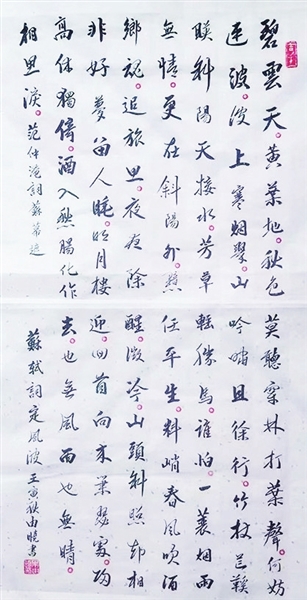 碧雲天。黃葉地。秋色
連波。波上寒烟翠。山
映斜陽天接水。芳草
無情。更在斜陽外。黯
鄉魂。追旅思。夜夜除
非好夢留人睡。明月樓
高休獨倚。酒入愁腸化作
相思淚。范仲淹詞蘇幕遮
莫聽穿林打葉聲。何妨
吟嘯且徐行。竹杖芒鞋
輕勝馬。誰怕。一蓑烟雨
任平生。料峭春風吹酒
醒。微冷。山頭斜照却相
迎。回首向來蕭瑟處。歸
去。也無風雨也無晴。
蘇軾詞定風波 壬寅秋由曉書